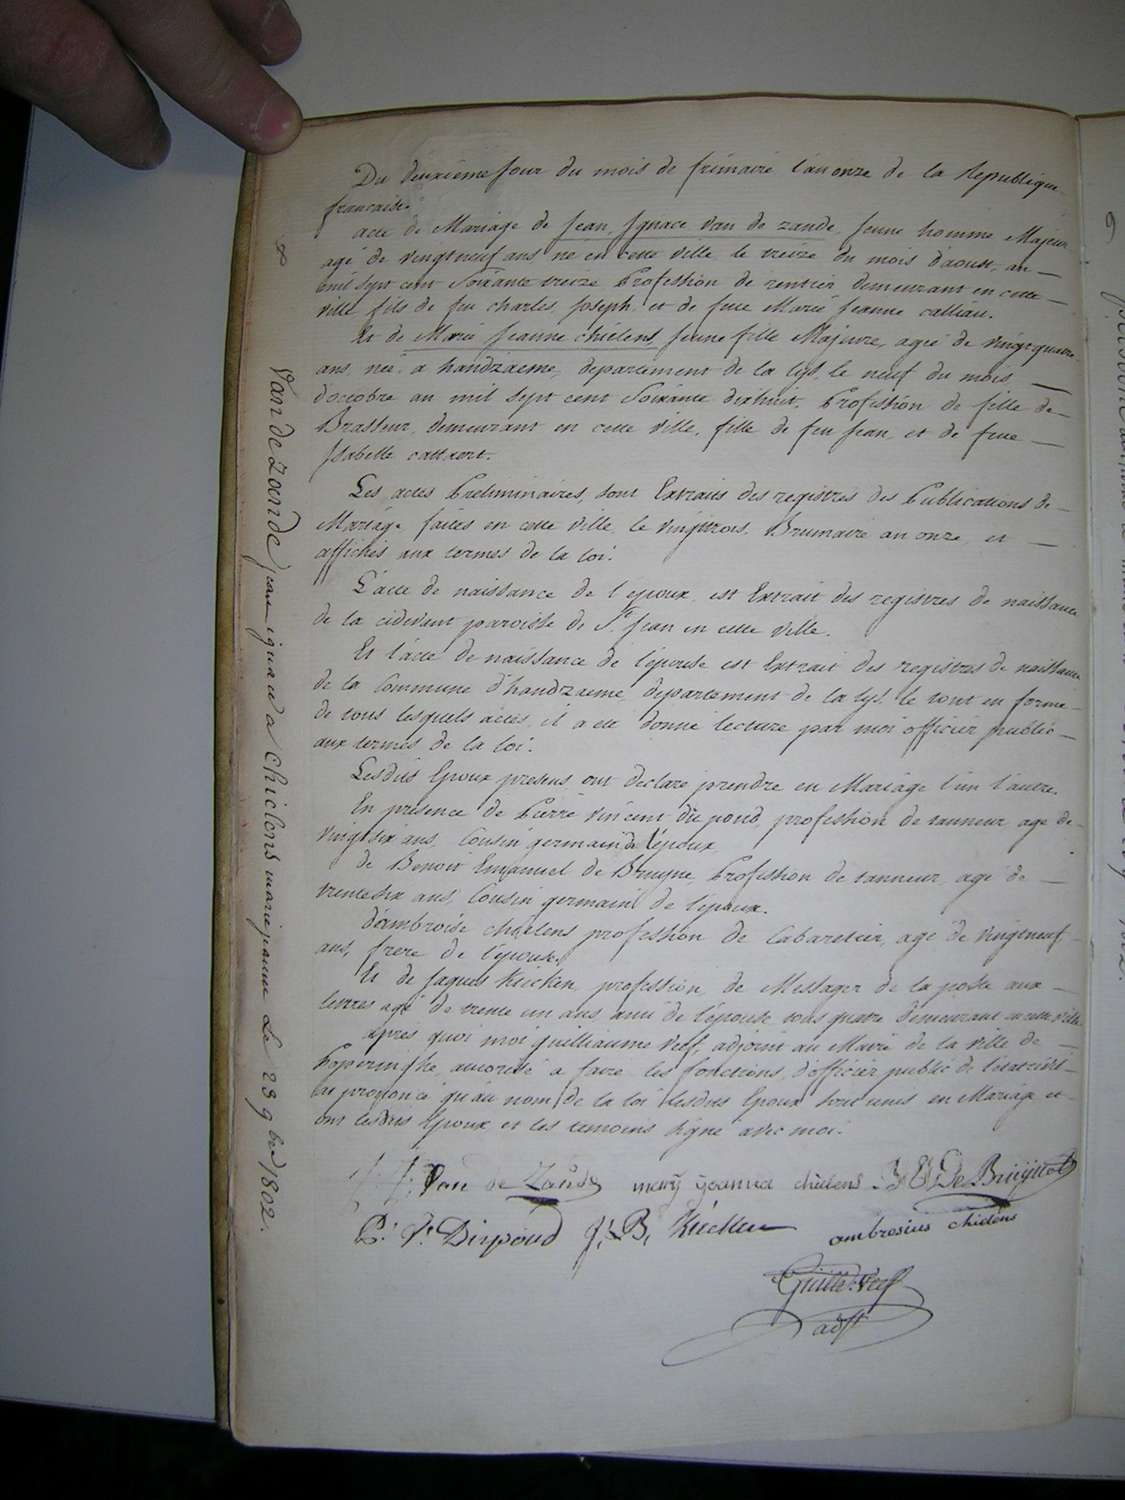 Du deuxieme jour du mois de frimaire l'an onze de la Republique
francaise.
acte de Mariage de Jean Ignace van de zande, jeune homme Majeur
agé de vingtneuf ans né en cette ville le treize du mois d'aoust, an
mil sept cent Soixante treize Profession de rentier demeurant en cette
ville fils de feu charles Joseph, et de feue Marie Jeanne calliau.
Et de Marie Jeanne chielens, Jeune fille Majeure, agée de vingt quatre
ans née a handzaeme, departement de la Lys, le neuf du mois
d'octobre an mil sept cent Soixante dixhuit, Profession de fille de
Brasseur, demeurant en cette ville, fille de feu Jean et de feue
Isabelle cattaert.
Les actes Preliminaires, sont Extraits des registres des Publications de
Mariage faites en cette ville le vingttrois Brumaire an onze, et
affichés aux termes de la loi.
L'acte de naissance de l'epoux est Extrait des registres de naissance
de la cidevant paroisse de St. Jean en cette ville.
Et l'acte de naissance de l'epouse est Extrait des registres de naissance
de la Commune d'handzaeme, departement de la Lys, le tout en forme
de tous lesquels actes, il a eté donné lecture par moi officier public
aux termes de la loi.
Lesdits Epoux presens ont declaré prendre en Mariage l'un l'autre.
En presence de Pierre vincent dispond, profession de tanneur agé de
vingtsix ans, Cousin germain de l'époux
de Benoit Emanuel de Bruyne, Profession de tanneur, agé de
trentesix ans, Cousin germain de l'epoux.
d'ambroise chielens profession de Cabaretier, agé de vingtneuf
ans, frere de l'epouse.
Et de Jaques Kiecken profession de Messager de la poste aux
lettres agé de trente un ans ami de l'épouse tous quatre demeurant en cette ville
apres quoi moi guilliaume Veef, adjoint au Maire de la ville de
Poperinghe, autorisé a faire les fonctions d'officier public de l'etat civil
ai prononcé qu'au nom de la loi lesdits Epoux sont unis en Mariage et
ont lesdits Epoux et les temoins signé avec moi.
J: J: Van de Zande mary joanna chielens B E De Bruyne
P: V: Dispond J: B, Kiecken ambrosius chielens
Guille Veef
adjt
Van de Zande jean ignace a Chielens marie jeanne Le 23 9bre 1802.